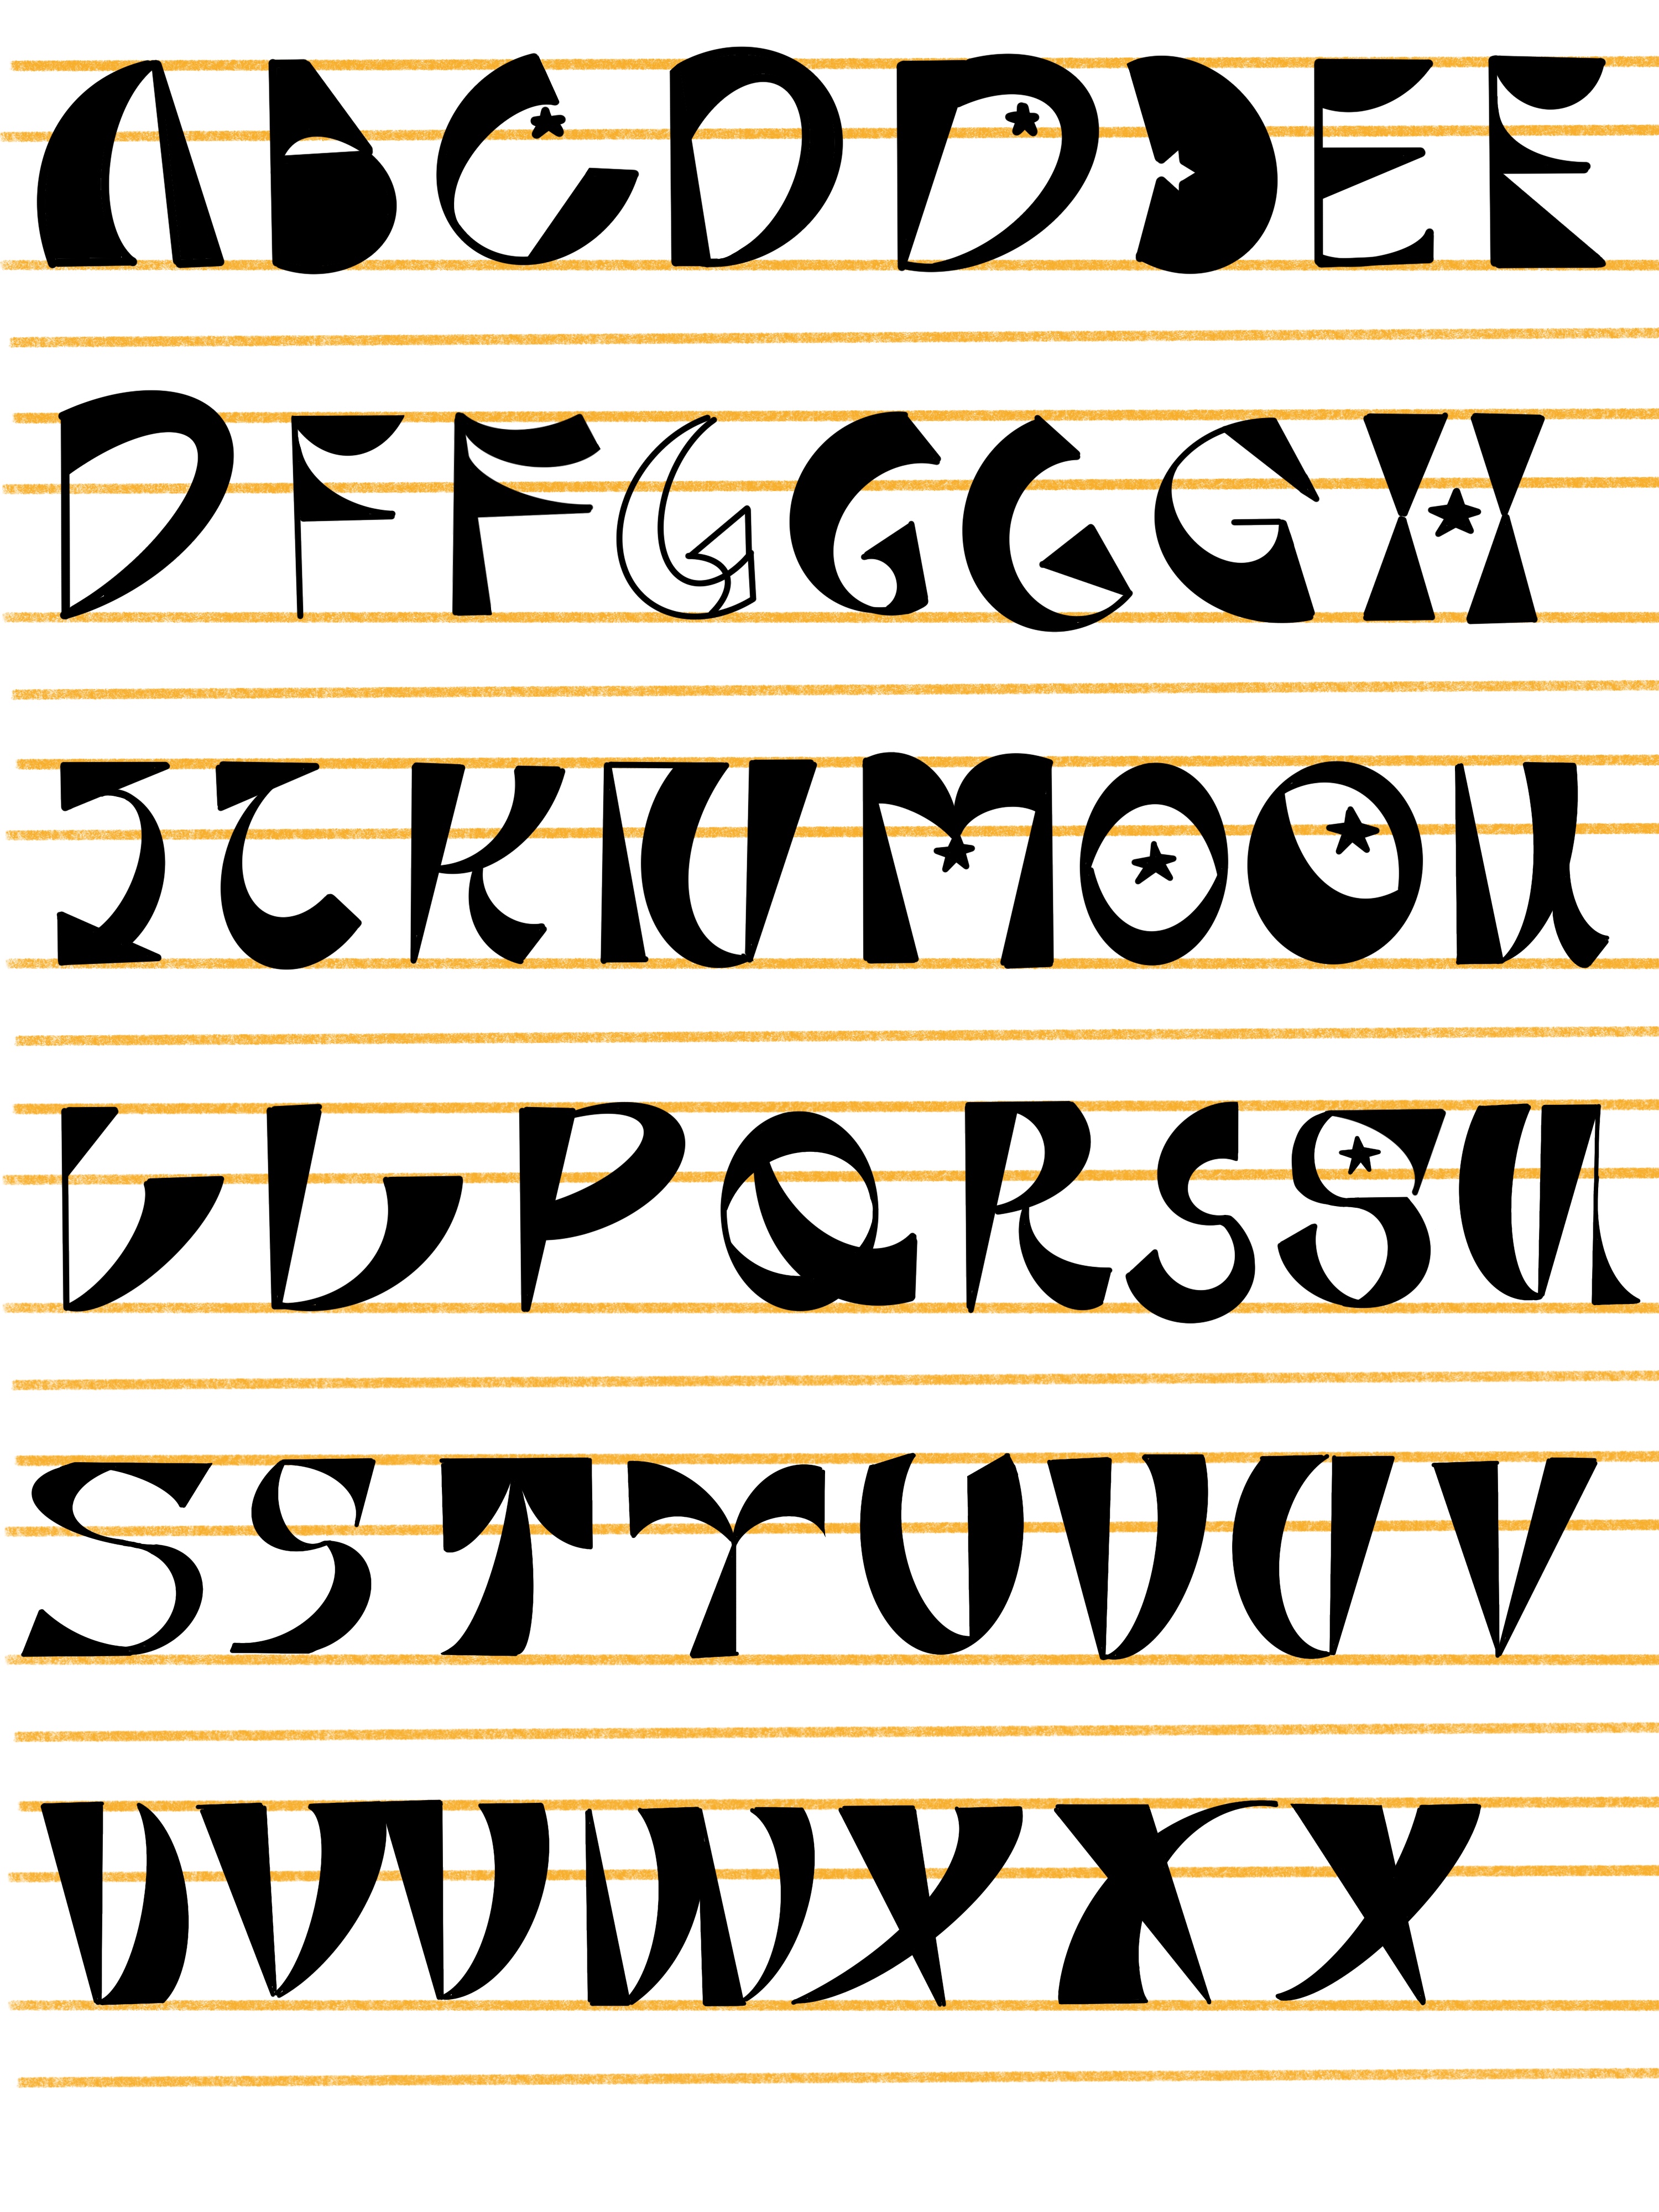 A B C D D D E E
D F F G G G G H
I T K N M O O U
L L P Q R S S U
S S T T U V U V
V W W X X X